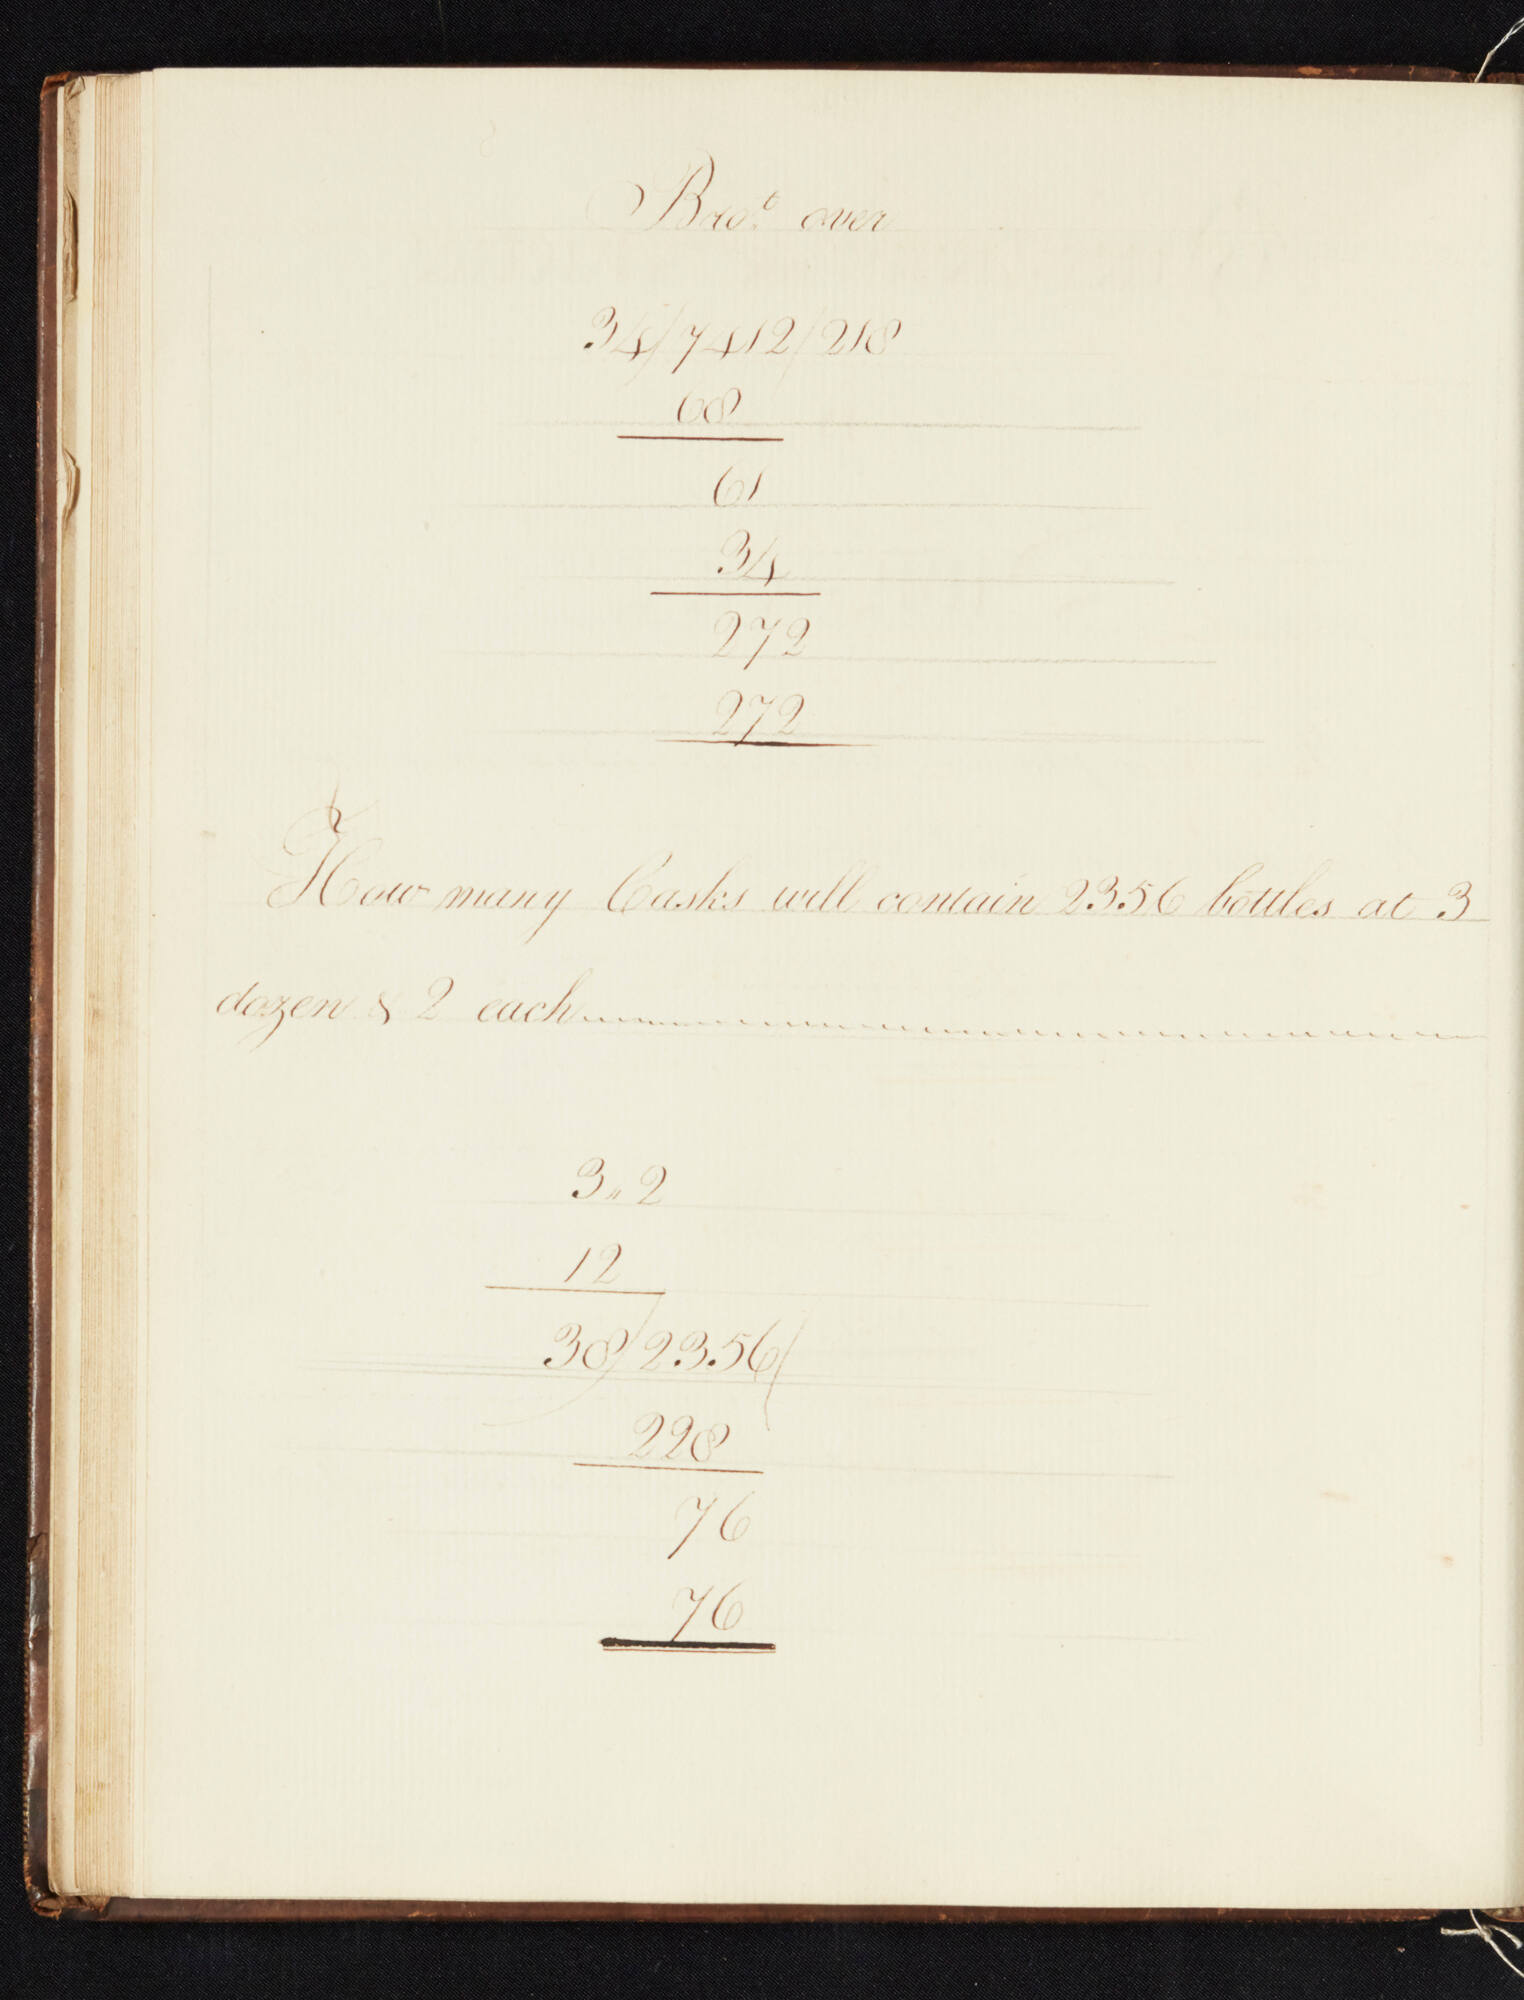 Brot. over
34)7412(218
68
61
34
272
272
How many Casks will contain 2356 bottles at 3
dozen & 2 each
3 " 2
12
38)2356(
228
76
76